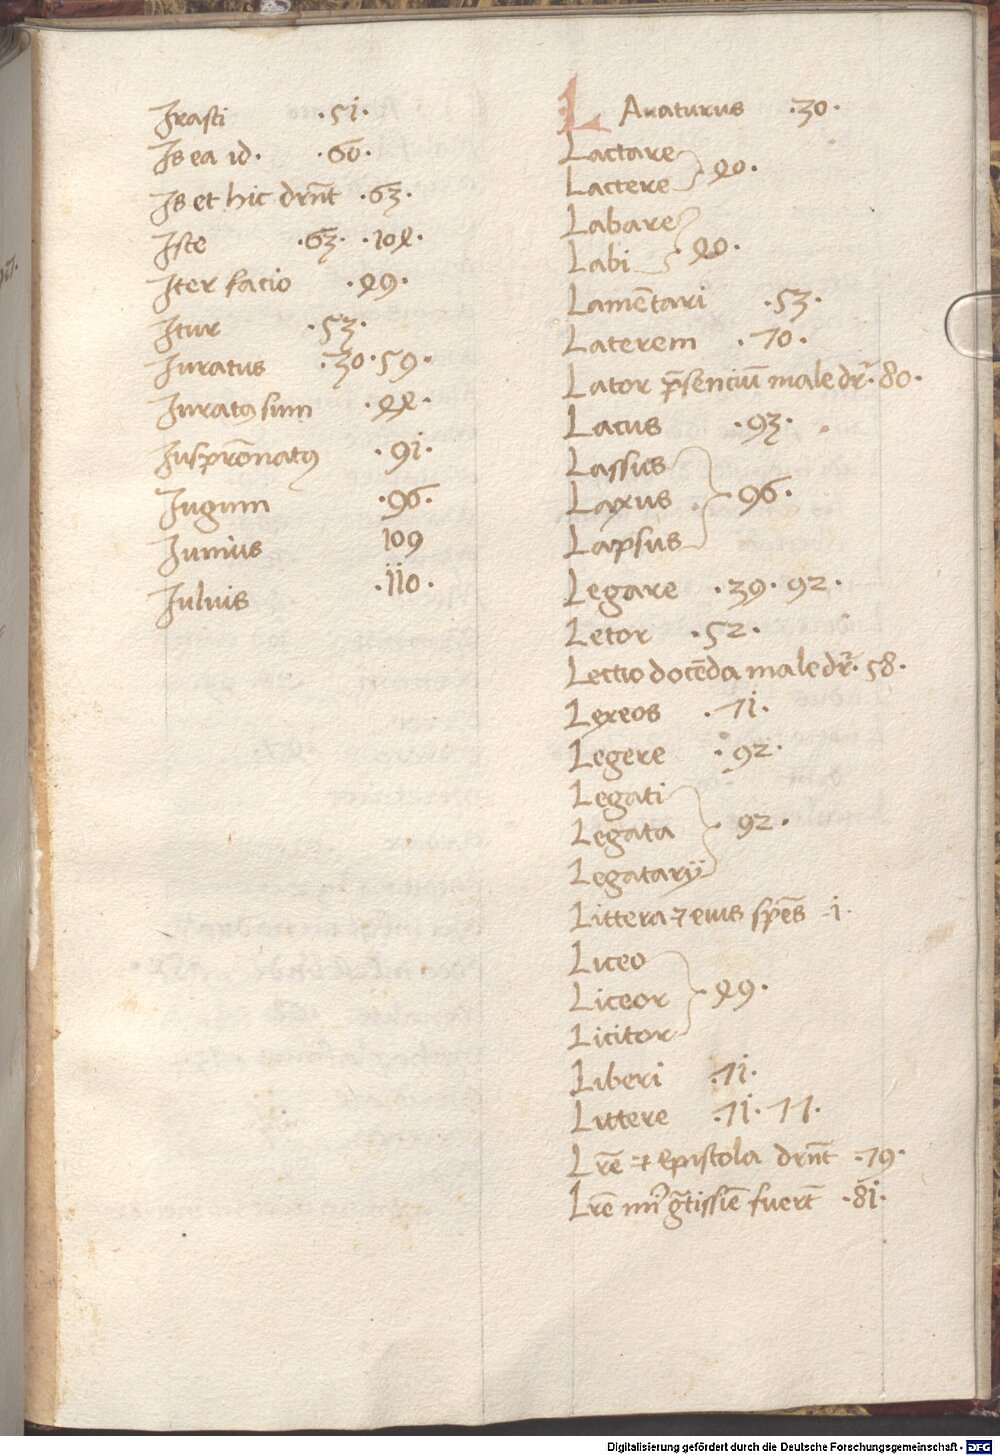 Irasci ·51·
Is ea id· ·60·
Is et hic dr̄nt ·63·
Iste ·63· ·104·
Iter facio ·49·
Itur ·53·
Iuratus ·30·59·
Iuratꝯ sum ·44·
Iuspr̄onatꝯ ·91·
Iugum ·96·
Iunius 109
Iulius ·110·
L Auaturus ·30·
Lactare
Lactere 40·
Labare
Labi 40·
Lamētari ·53·
Laterem ·70·
Lator p̄senciū male dr̄·80·
Lacus ·93·
Lassus
Laxus ·96·
Lapsus
Legare ·39·92·
Letor ·52·
Lectio docēda male dr̄·58·
Lexeos ·71·
Legere ·92·
Legati
Legata 92·
Legatarÿ
Littera ⁊ eius sp̄es ·1·
Liceo
Liceor ·49·
Licitor
Liberi ·71·
Littere ·71·77·
Lr̄e ⁊ epistola dr̄nt ·79·
Lr̄e g̅tissīe fuer̄t ·81·
Digitalisierung gefördert durch die Deutsche Forschungsgemeinschaft - DFG